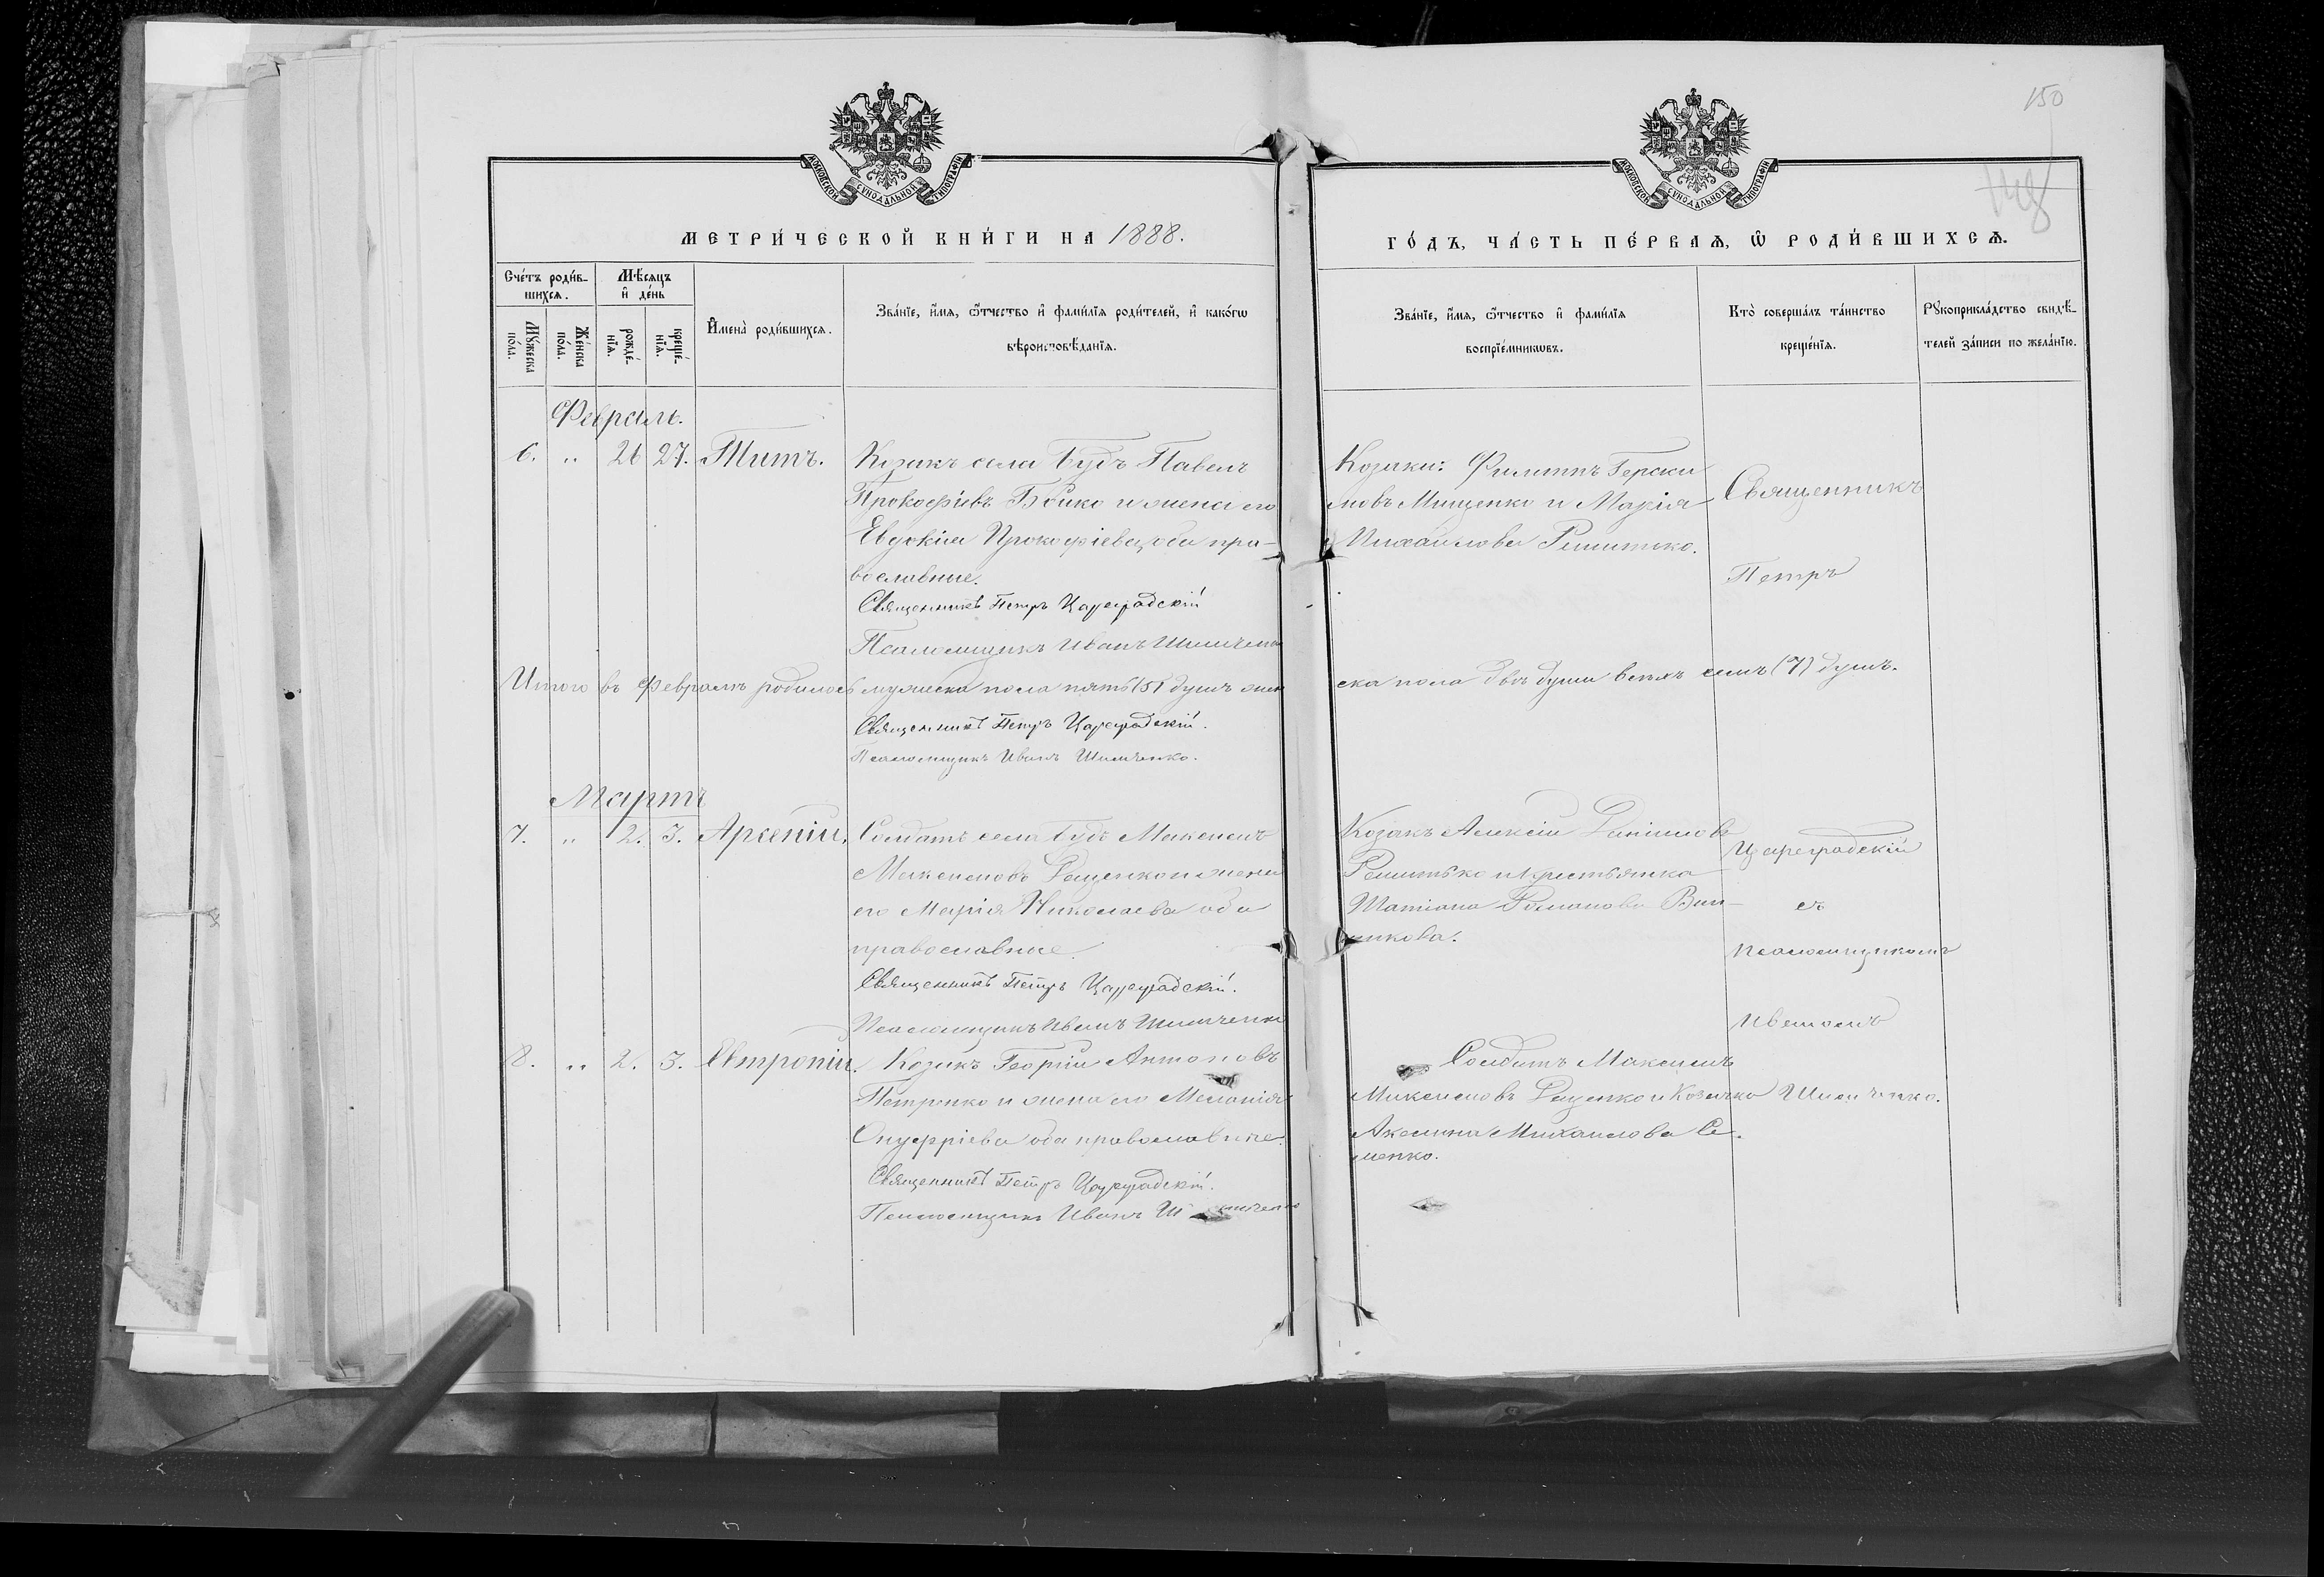 150
МОСКОВСКОЙ СѴНОДАЛЬНОЙ ТИПОГРАФІИ
МОСКОВСКОЙ СѴНОДАЛЬНОЙ ТИПОГРАФІИ
МЕТРИ́ЧЕСКОЙ КНИ́ГИ НА 1888.
ГО́ДЪ, ЧА́СТЬ ПЕ́РВАѦ, Ѡ҆ РОДИ́ВШИХСѦ.
Сче́тъ роди́в-
шихсѧ.
Мѣ́сѧцъ
и҆ де́нь
Мꙋ́жеска
по́ла.
Же́нска
по́ла.
рожде́-
нїѧ.
креще́-
нїѧ.
И҆мена̀ роди́вшихсѧ.
Зва́нїе, и҆́мѧ, ѻ҆́тчество и҆ фами́лїѧ роди́телей, и҆ како́гѡ
вѣроисповѣ́данїѧ.
Зва́нїе, и҆́мѧ, ѻ҆́тчество и҆ фами́лїѧ
воспрїе́мникѡвъ.
Кто̀ соверша́лъ та́инство
креще́нїѧ.
Рꙋкоприкла́дство свидѣ́-
телей за́писи по жела́нїю.
Февраль.
6. „ 26 27. Титъ.
Козакъ села Будъ Павелъ
Прокофіевъ Бойко и жена его
Евдокія Прокофіева, оба пра-
вославные.
Священникъ Петръ Цареградскій
Псаломщикъ Иванъ Шимченко
Козаки: Филиппъ Гераси
мовъ Мищенко и Марія
Михаилова Решитько.
Священникъ
Петръ
Итого въ Февралѣ родилось мужеска пола пять (5) душъ жен
ска пола двѣ души всѣхъ семь (7) душъ.
Священникъ Петръ Цареградскій.
Псаломщикъ Иванъ Шимченко.
Мартъ
7. „ 2. 3. Арсеній.
Солдатъ села Будъ Максимъ
Максимовъ Рященко и жена
его Марія Николаева оба
православные.
Священникъ Петръ Цареградскій.
Псаломщикъ Иванъ Шимченко
Козакъ Алексій Даніилов
Решитько и крестьянка
Татіана Романова Вин-
никова.
Цареградскій
съ
псаломщикомъ
Иваномъ
Шимченко.
8. „ 2. 3. Евтропій.
Козакъ Георгій Антоновъ
Петренко и жена его Меланія
Онуфріева оба православные.
Священникъ Петръ Цареградскій.
Псаломщикъ Иванъ Шимченко
Солдатъ Максимъ
Максимовъ Рященко и Козачка
Акелина Михаилова Се-
менко.